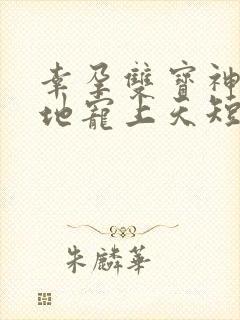 幸孕雙寶神
地寵上天短
朱麟華